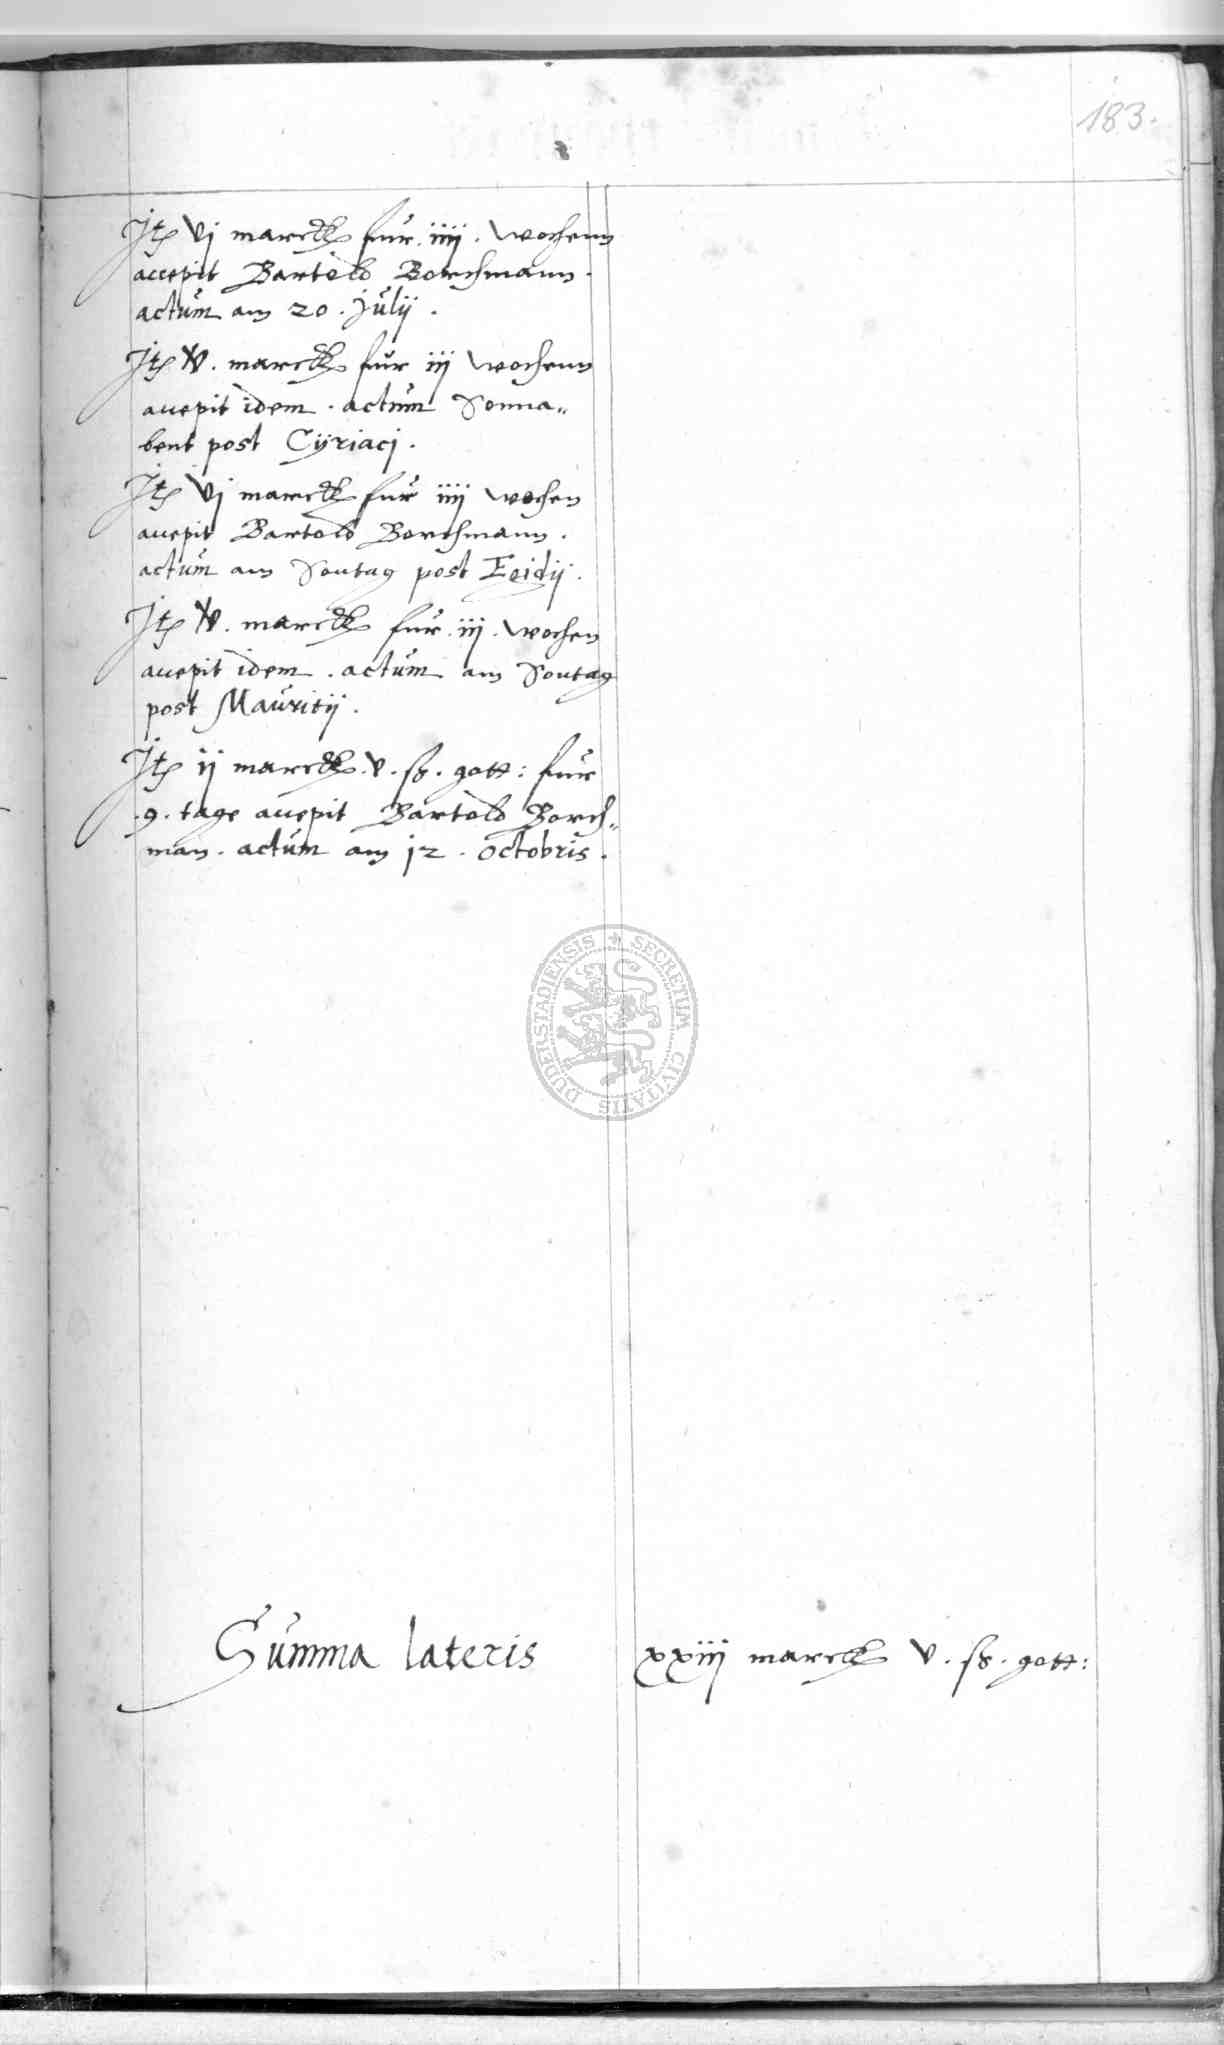 183.
Jtꝭ vj marck fur . iiij . wochenn
accepit Bartold Borchmann .
actum am 20 . Julij .
Jtꝭ v̸ . marck fur iij wochenn
accepit idem . actum Sonna„
bent post Cyriacj .
Jtꝭ vj marck fur iiij wochen
accepit Bartold Borchmann .
actum am Sontag post Egidij .
Jtꝭ v̸ . marck fur . iij . wochen
accepit idem . actum am Sontag
post Mauritij .
Jtꝭ ij marck . v . ß . gott : fur
. 9 . tage accepit Bartold Borch„
man . actum am 12 . octobris .
DUDERSTADIENSIS + SECRETUM CIVITATIS
Summa lateris xxiij marck v . ß . gott :